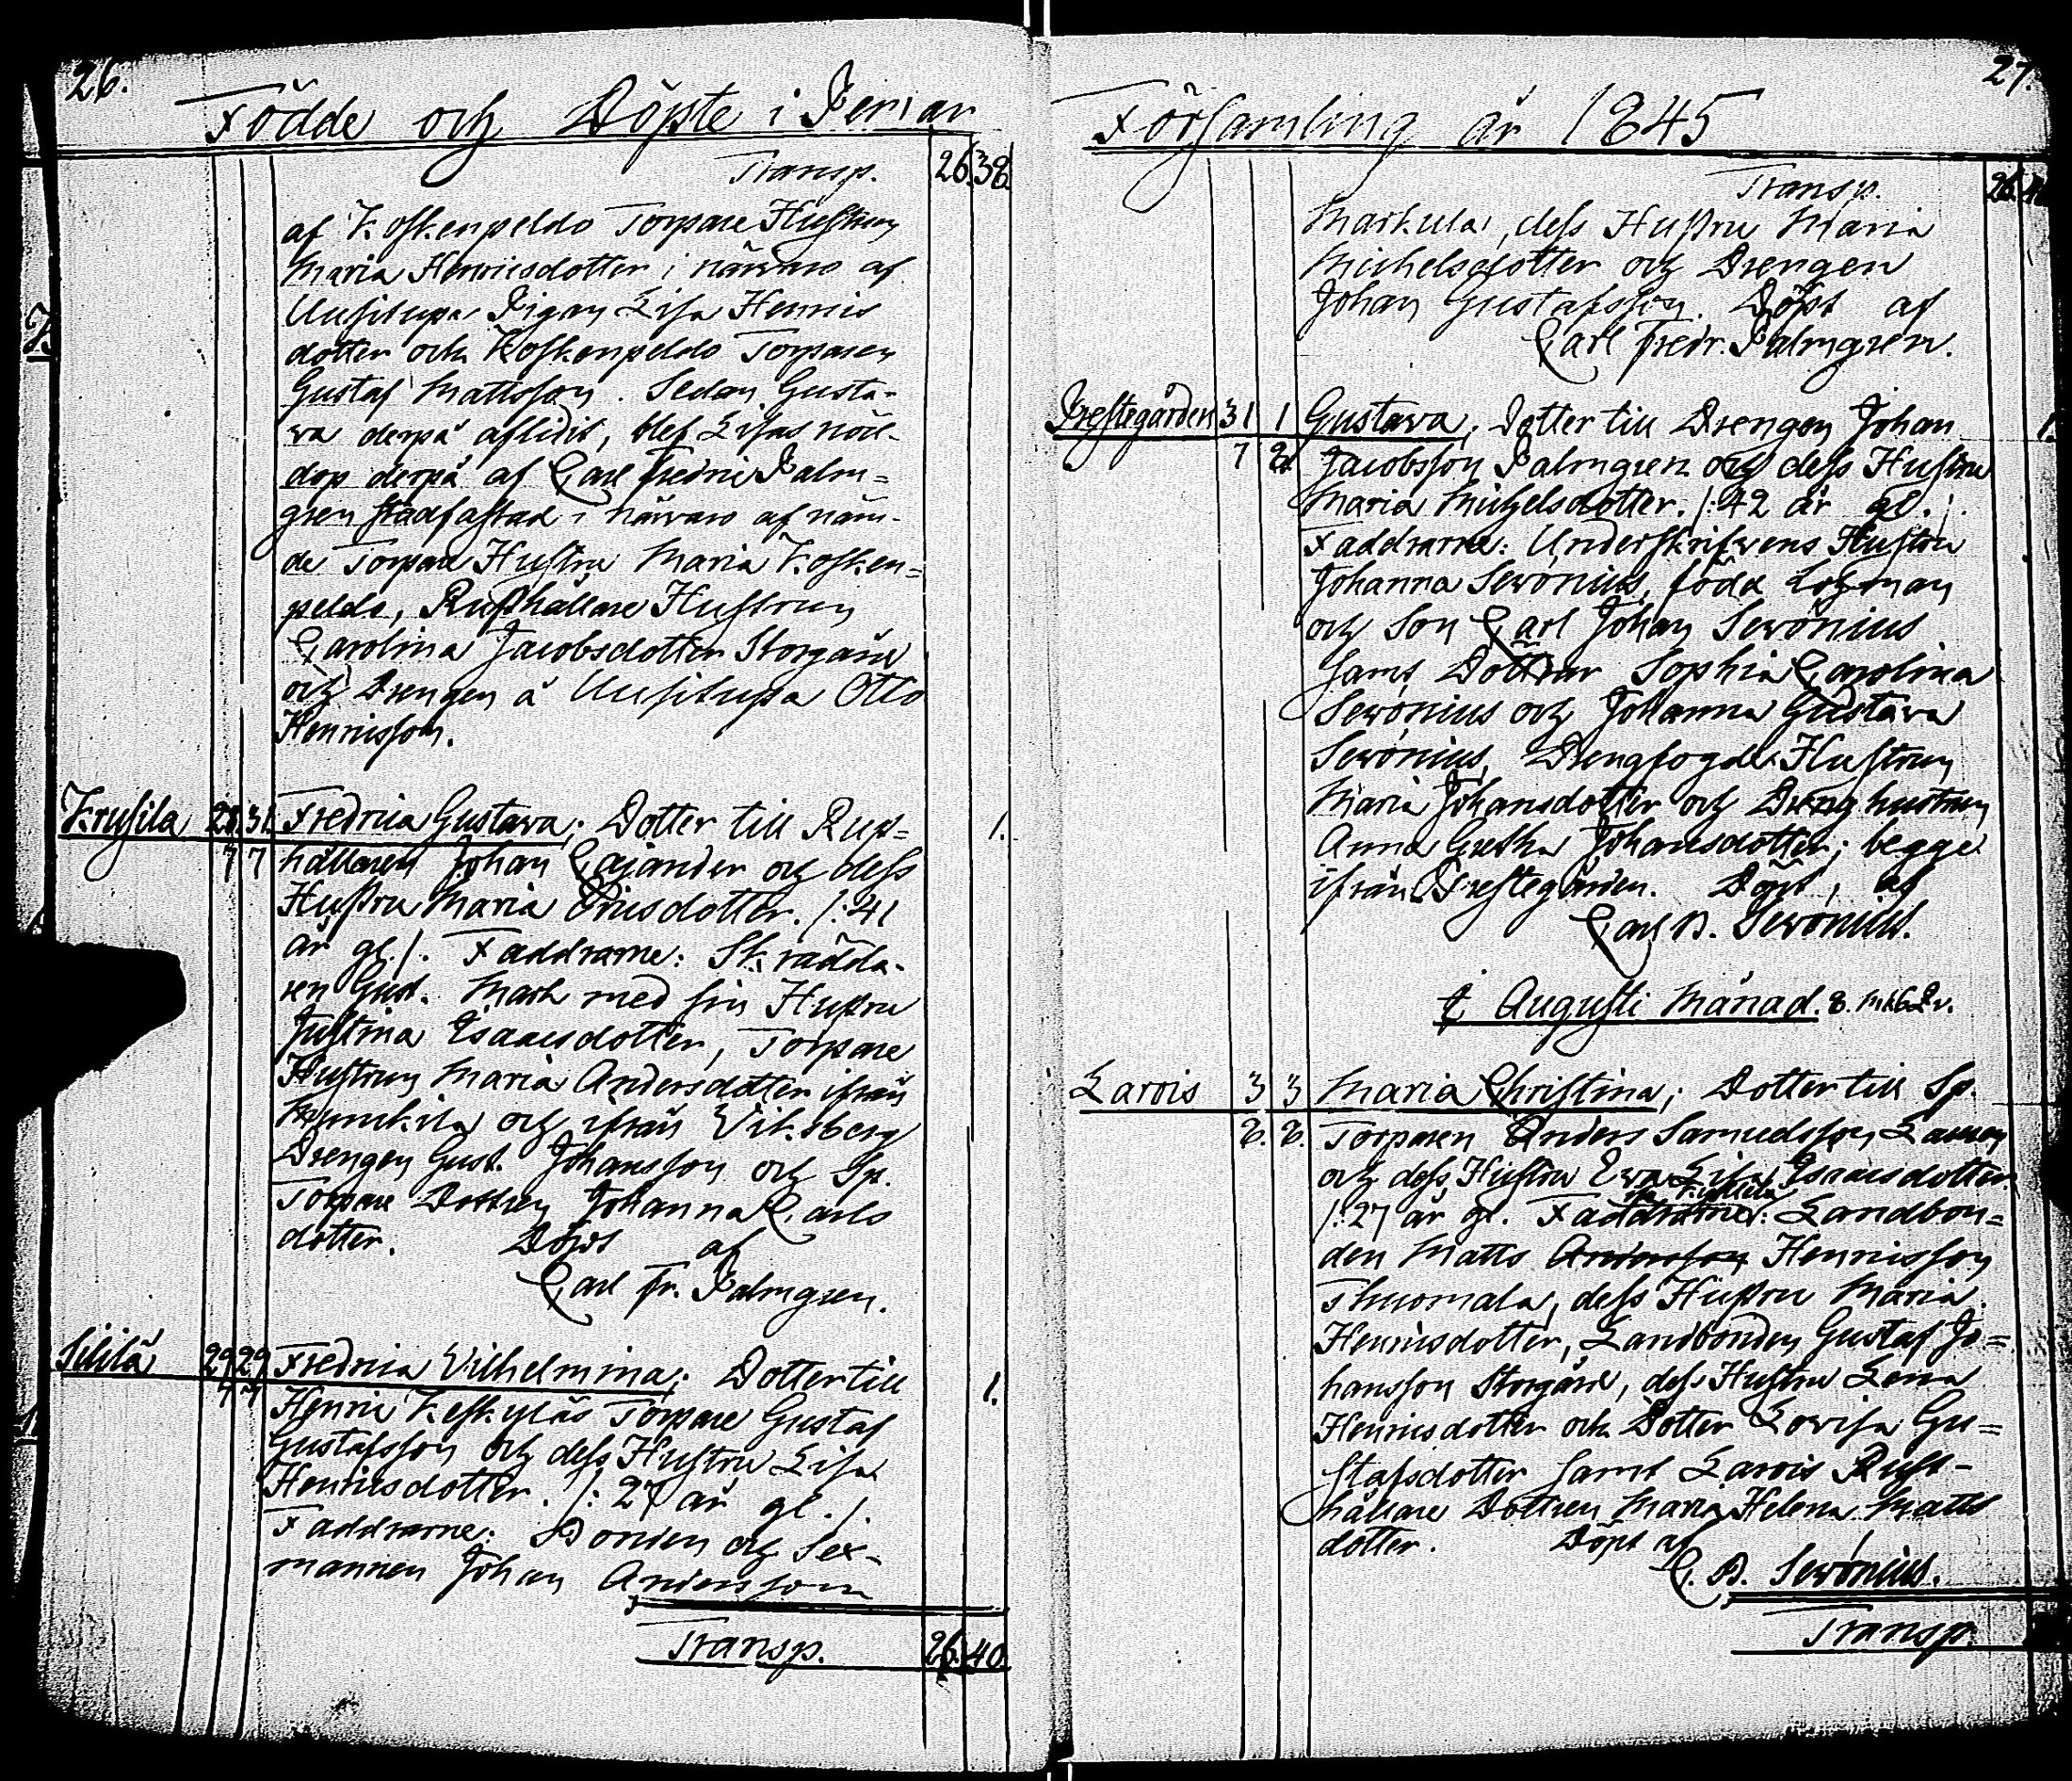 26.
Födde och Döpte i Pemar
Transp. 26. 38.
af Koskenpeldo Torpare Hustrun
Maria Henricsdotter i närvaro af
Uusitupa Pigan Lisa Henrics
dotter och Koskenpeldo Torparen
Gustaf Mattsson. Sedan Gusta-
va derpå aflidit, blef Lisas nöd-
dop derpå af Carl Fredric Palm=
gren stadfästad i närvaro af näm-
de Torpare Hustru Maria Kosken=
peldo, Rusthållare Hustrun
Carolina Jacobsdotter Storgård
och Drengen å Uusitupa Otto
Henricsson.
Krusila 28 31 Fredrica Gustava; Dotter till Rus= 1.
7 7 hållaren Johan Cajander och dess
Hustru Maria Ericsdotter. /: 41
år gl. /. Faddrarne: Skrädda-
ren Gust. Mark med sin Hustru
Justina Isaacsdotter, Torpare
Hustrun Maria Andersdotter ifrån
och ifrån Viksberg
Drengen Gust. Johansson och Sp.
Torpare Dottren Johanna Carls
dotter. Döpt af
Carl Fr. Palmgren.
Sililä 29 29 Fredrica Vilhelmina; Dotter till 1.
7 7 Henric Keskyläs Torpare Gustaf
Gustafsson och dess Hustru Lisa
Henricsdotter. /: 27 år gl. /.
Faddrarne: Bonden och Sex-
mannen Johan Andersson
Transp. 26. 40.
27.
Församling år 1845
Transp. 26.
Markula, dess Hustru Maria
Michelsdotter och Drengen
Johan Gustafsson. Döpt af
Carl Fredr. Palmgren.
Prestegården 31 1 Gustava; Dotter till Drengen Johan 1.
7 8 Jacobsson Palmgren och dess Hustru
Maria Michelsdotter. /: 42 år gl. /.
Faddrarne: Underskrifvens Hustru
Johanna Serönius, född Lohman
och Son Carl Johan Serönius
samt Döttrar Sophia Carolina
Serönius och Johanna Gustava
Serönius, Drengfogde Hustrun
Maria Johansdotter och Dreng hustrun
Anna Gretha Johansdotter; begge
ifrån Prestegården. Döpt, af
Carl B. Serönius.
I Augusti Månad.
Larvis 3 3 Maria Christina; Dotter till Sp.
8. 8. Torparen Anders Samuelsson Lauren
och dess Hustru Eva Lisa Isaacsdotter
/: 27 år gl. Faddrarne: Landbon=
den Matts Andersson Henricsson
Thuomala, dess Hustru Maria
Henricsdotter, Landbonden Gustaf Jo=
hansson Storgård, dess Hustru Lena
Henricsdotter och Dotter Lovisa Gu=
stafsdotter samt Larvis Rust-
hållare Dottren Maria Helena Matts
dotter. Döpt af
C. B. Serönius.
Transp.